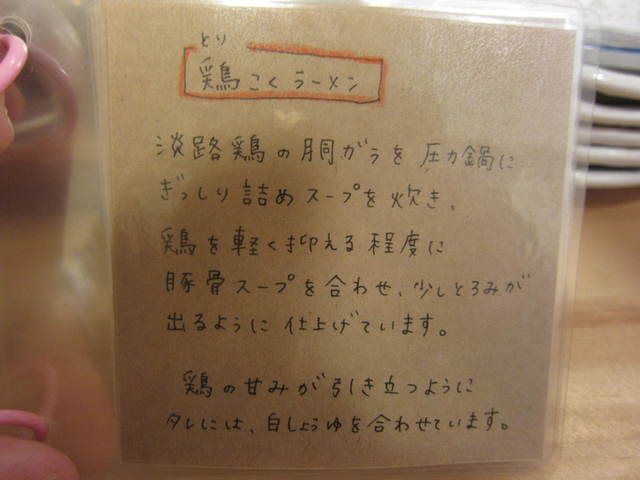 とり
鶏こくラーメン
淡路鶏の胴がラを圧力鍋に
ぎっしり詰めスープを炊き、
鶏を軽く抑える程度に
豚骨スープを合わせ、少しとろみが
出るように仕上げています。
鶏の甘みが引き立つように
タレには、白しょうゆを合わせています。